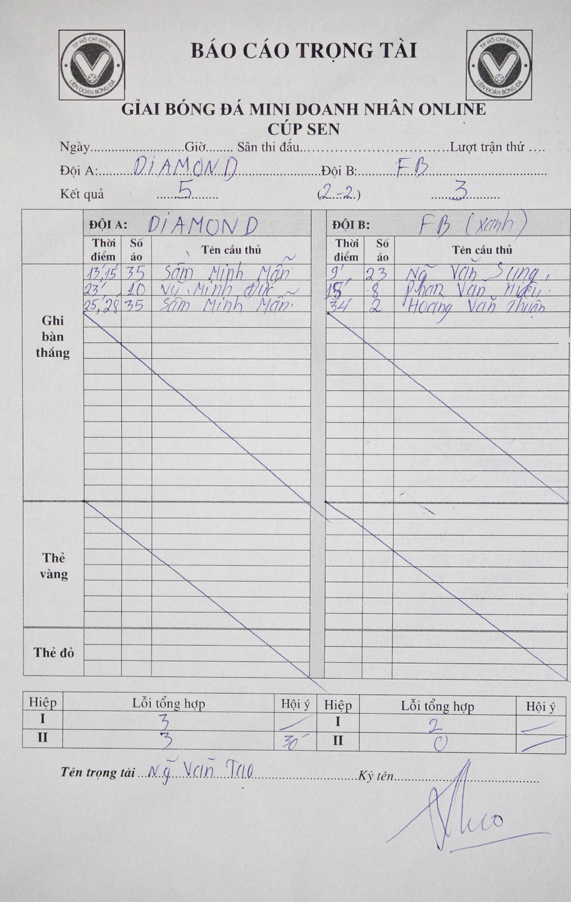 TP HỒ CHÍ MINH
LIÊN ĐOÀN BÓNG ĐÁ
BÁO CÁO TRỌNG TÀI
TP HỒ CHÍ MINH
LIÊN ĐOÀN BÓNG ĐÁ
GIẢI BÓNG ĐÁ MINI DOANH NHÂN ONLINE
CÚP SEN
Ngày....................Giờ....... Sân thi đấu...............................Lượt trận thứ ....
Đội A: DIAMOND Đội B: FB
Kết quả 5 (2-2) 3
ĐỘI A: DIAMOND ĐỘI B: FB (xanh)
Thời điểm Số áo Tên cầu thủ Thời điểm Số áo Tên cầu thủ
Ghi bàn thắng
13',15' 35 Sầm Minh Mẫn 9' 23 Ng̃ Văn Sung.
23' 10 Vũ Minh Đức 15' 8 Phan Văn
25',28' 35 Sầm Minh Mẫn. 34' 2 Hoàng Văn Thuận
Thẻ vàng
Thẻ đỏ
Hiệp Lỗi tổng hợp Hội ý Hiệp Lỗi tổng hợp Hội ý
I 3 I 2
II 3 30' II 0
Tên trọng tài Ng̃ Văn Tạo Ký tên